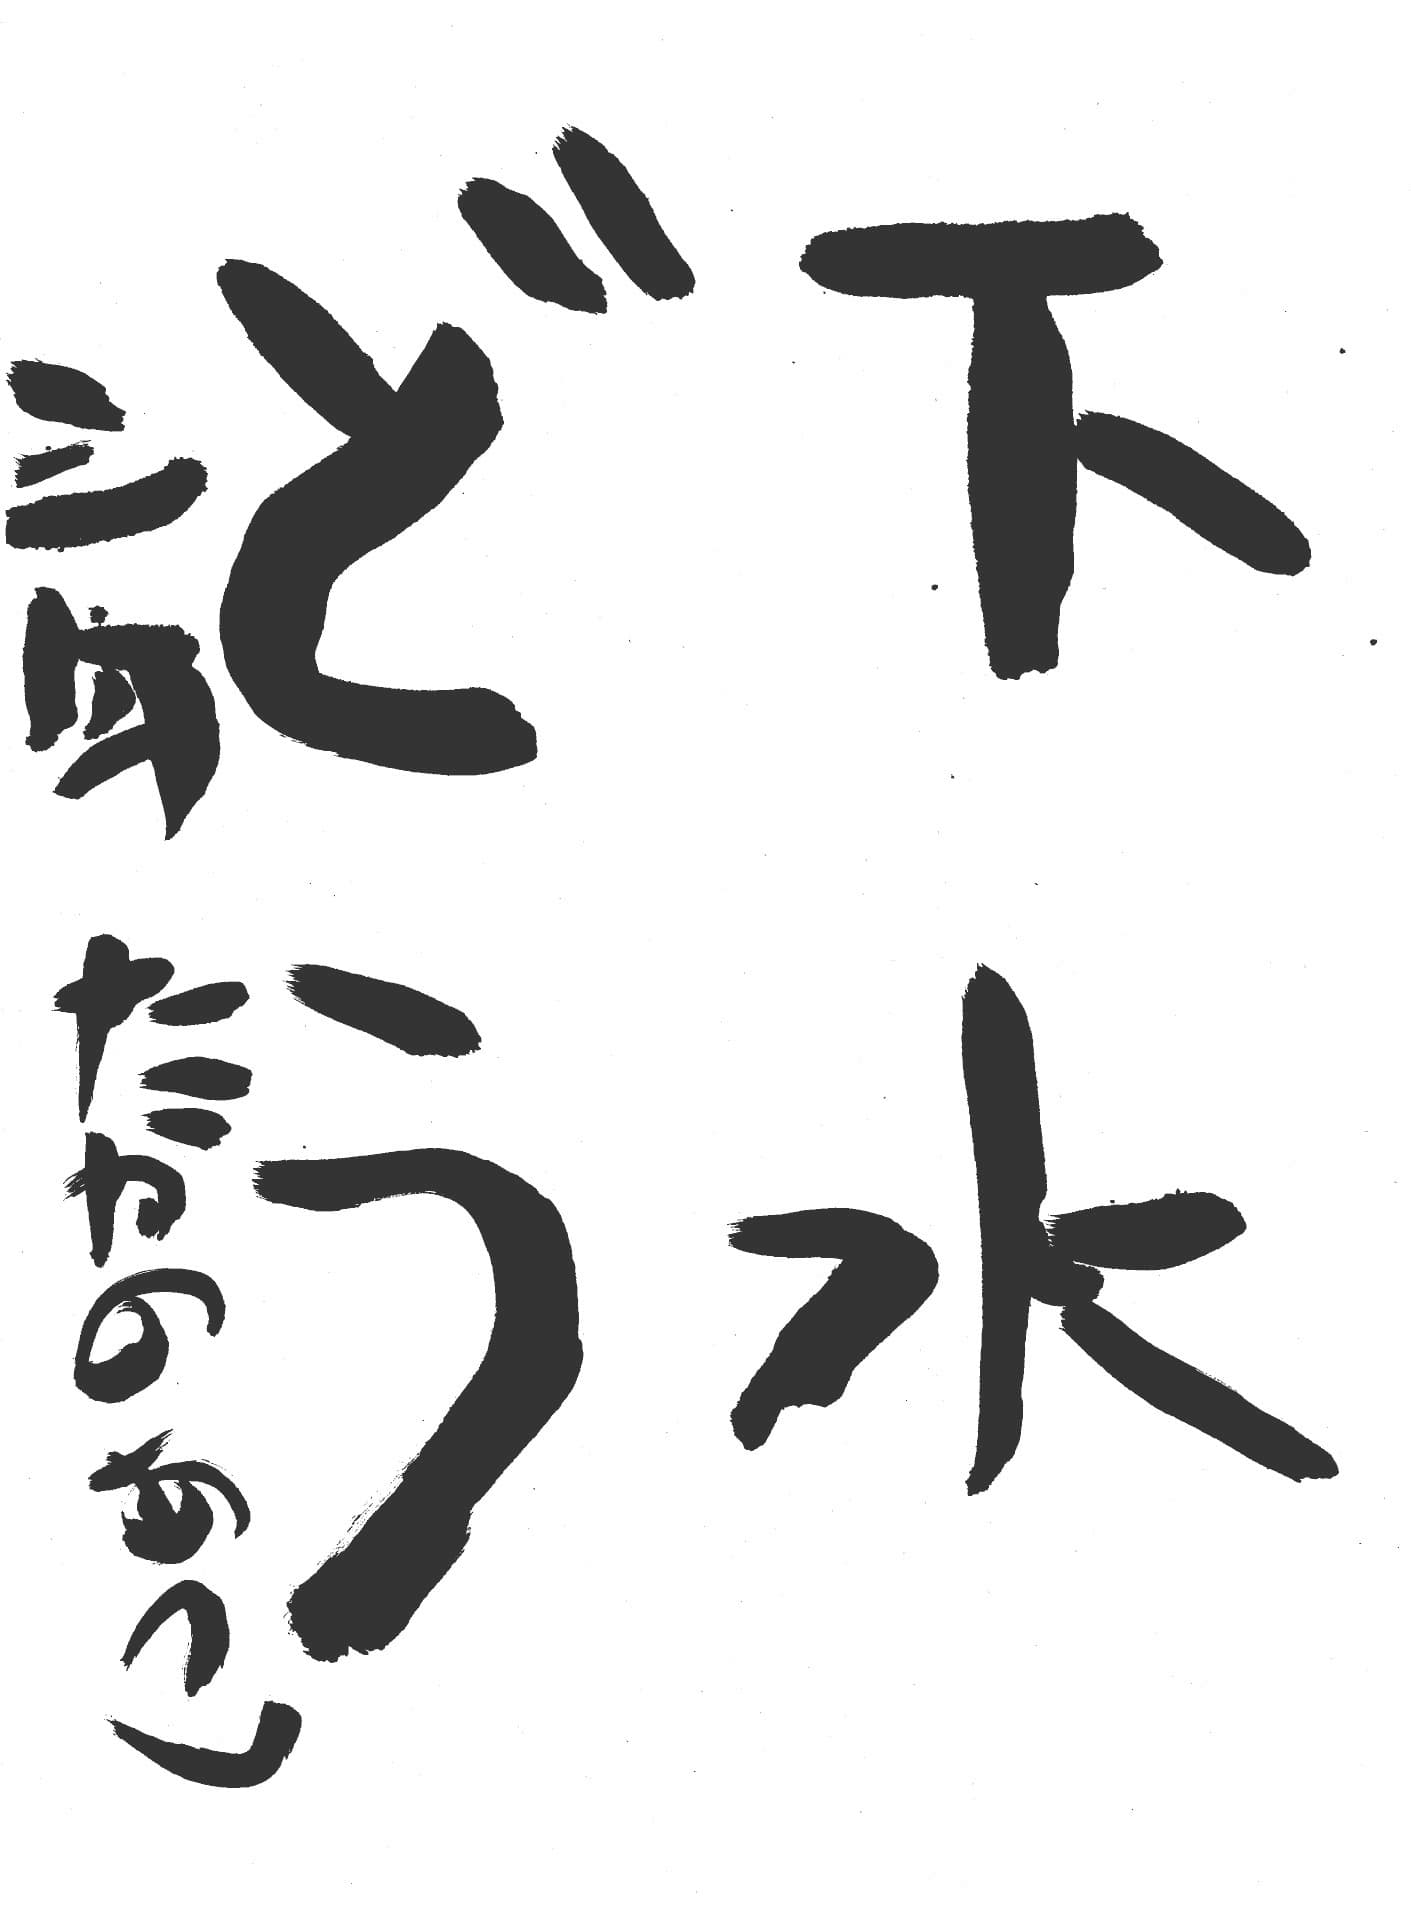 下水
どう
たかのあつし